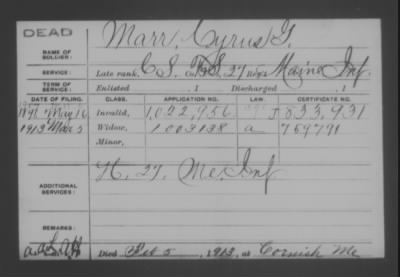 DEAD
NAME OF SOLDIER:
Marr, Cyrus G.
SERVICE:
Late rank, C. S. Co. F.S., 27 Reg't Maine Inf.
TERM OF SERVICE:
Enlisted , 1 Discharged , 1
DATE OF FILING. CLASS. APPLICATION NO. LAW. CERTIFICATE NO.
1891 May 16 Invalid, 1,022,956 J 833,931
1913 Mar 5 Widow, 1003138 a 759791
Minor,
ADDITIONAL SERVICES:
H. 27. Me. Inf
REMARKS:
Died Feb 5, 1913, at Cornish Me